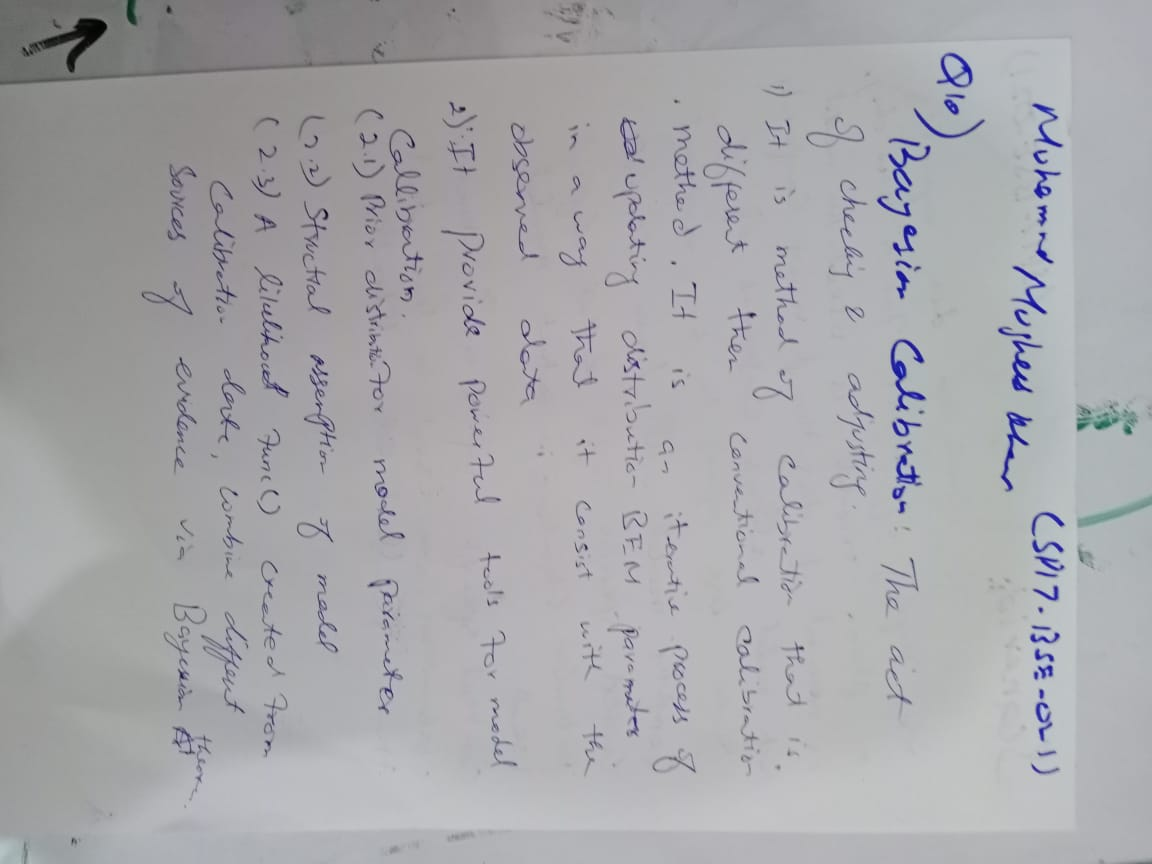 Muhammad Mughees Khan (SP17-BSE-021)
Q10)
Bayesian Calibration: The act
of checking & adjusting.
1) It is method of calibration that is
different then conventional calibration
. method. It is an iterative process of
updating distribution BEM parameters
in a way that it consist with the
observed data
2) It provide powerful tools for model
Callibration.
(2.1) Prior distribution for model parameter
(2.2) Structral assemption of model
(2.3) A likelihood func() created from
Calibration data, combine diffrent
Sources of evidence via Bayesian theore.